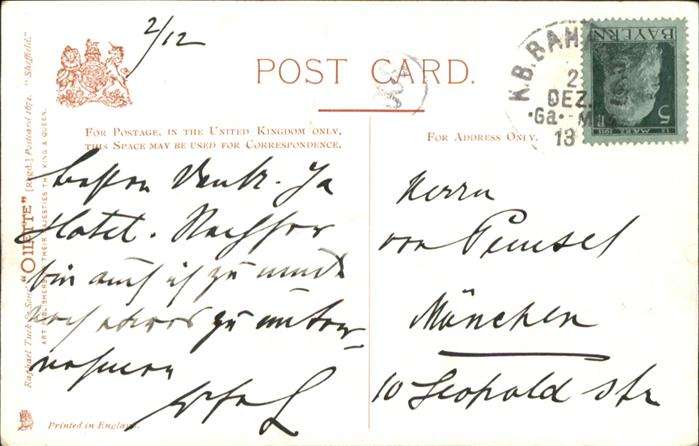 2/12
POST CARD.
FOR POSTAGE, IN THE UNITED KINGDOM ONLY,
THIS SPACE MAY BE USED FOR CORRESPONDENCE.
FOR ADDRESS ONLY.
K.B.BAH
2
DEZ.
Ga.
13
BAYERN
5
Raphael Tuck & Sons' "OILETTE" [Regd.] Postcard "Sheffield."
ART PUBLISHERS TO THEIR MAJESTIES THE KING & QUEEN.
besten Dank. Ja
Hotel.
bin auch ich zu
noch etwas zu unter-
nehmen
Herrn
von
München
10 Leopold str
Printed in England.